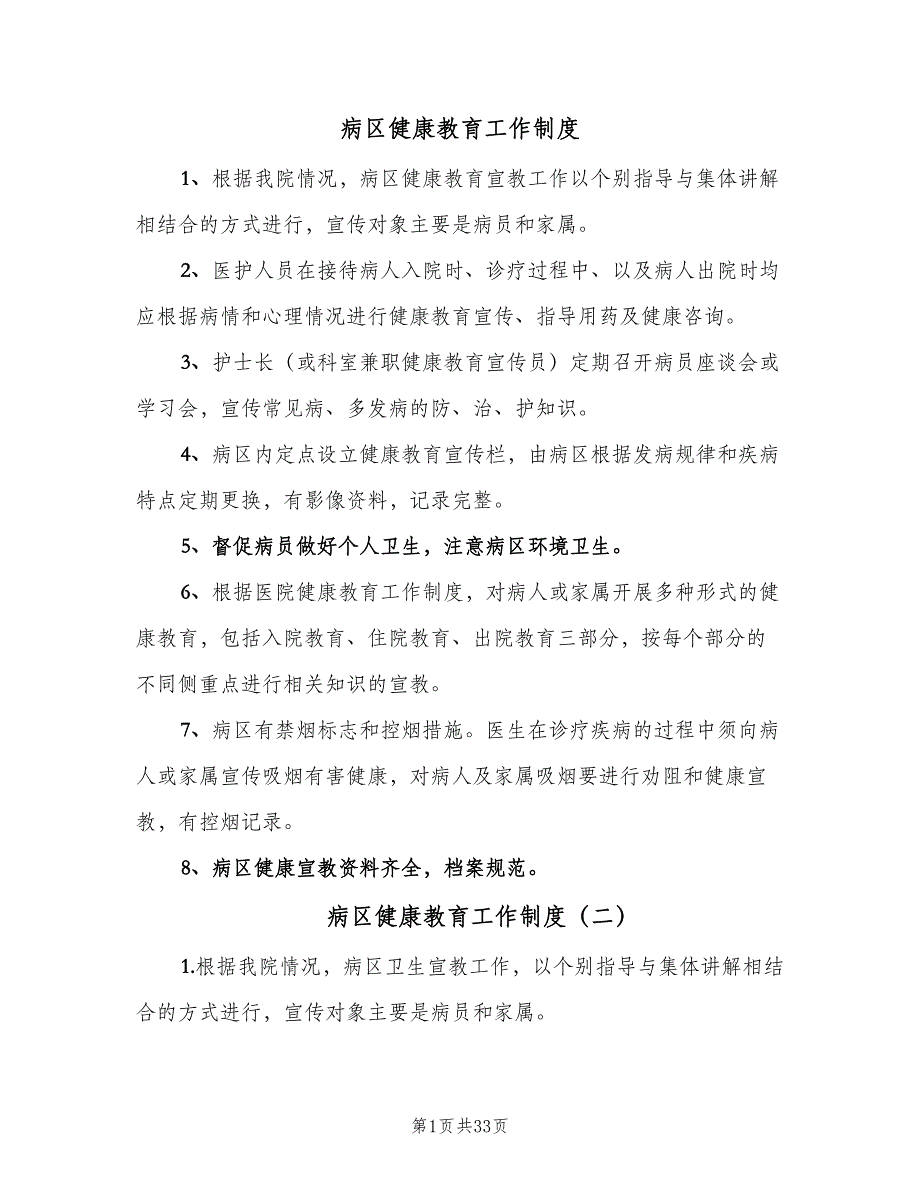 病区健康教育工作制度
1、根据我院情况，病区健康教育宣教工作以个别指导与集体讲解
相结合的方式进行，宣传对象主要是病员和家属。
2、医护人员在接待病人入院时、诊疗过程中、以及病人出院时均
应根据病情和心理情况进行健康教育宣传、指导用药及健康咨询。
3、护士长（或科室兼职健康教育宣传员）定期召开病员座谈会或
学习会，宣传常见病、多发病的防、治、护知识。
4、病区内定点设立健康教育宣传栏，由病区根据发病规律和疾病
特点定期更换，有影像资料，记录完整。
5、督促病员做好个人卫生，注意病区环境卫生。
6、根据医院健康教育工作制度，对病人或家属开展多种形式的健
康教育，包括入院教育、住院教育、出院教育三部分，按每个部分的
不同侧重点进行相关知识的宣教。
7、病区有禁烟标志和控烟措施。医生在诊疗疾病的过程中须向病
人或家属宣传吸烟有害健康，对病人及家属吸烟要进行劝阻和健康宣
教，有控烟记录。
8、病区健康宣教资料齐全，档案规范。
病区健康教育工作制度（二）
1.根据我院情况，病区卫生宣教工作，以个别指导与集体讲解相结
合的方式进行，宣传对象主要是病员和家属。
第1页共33页